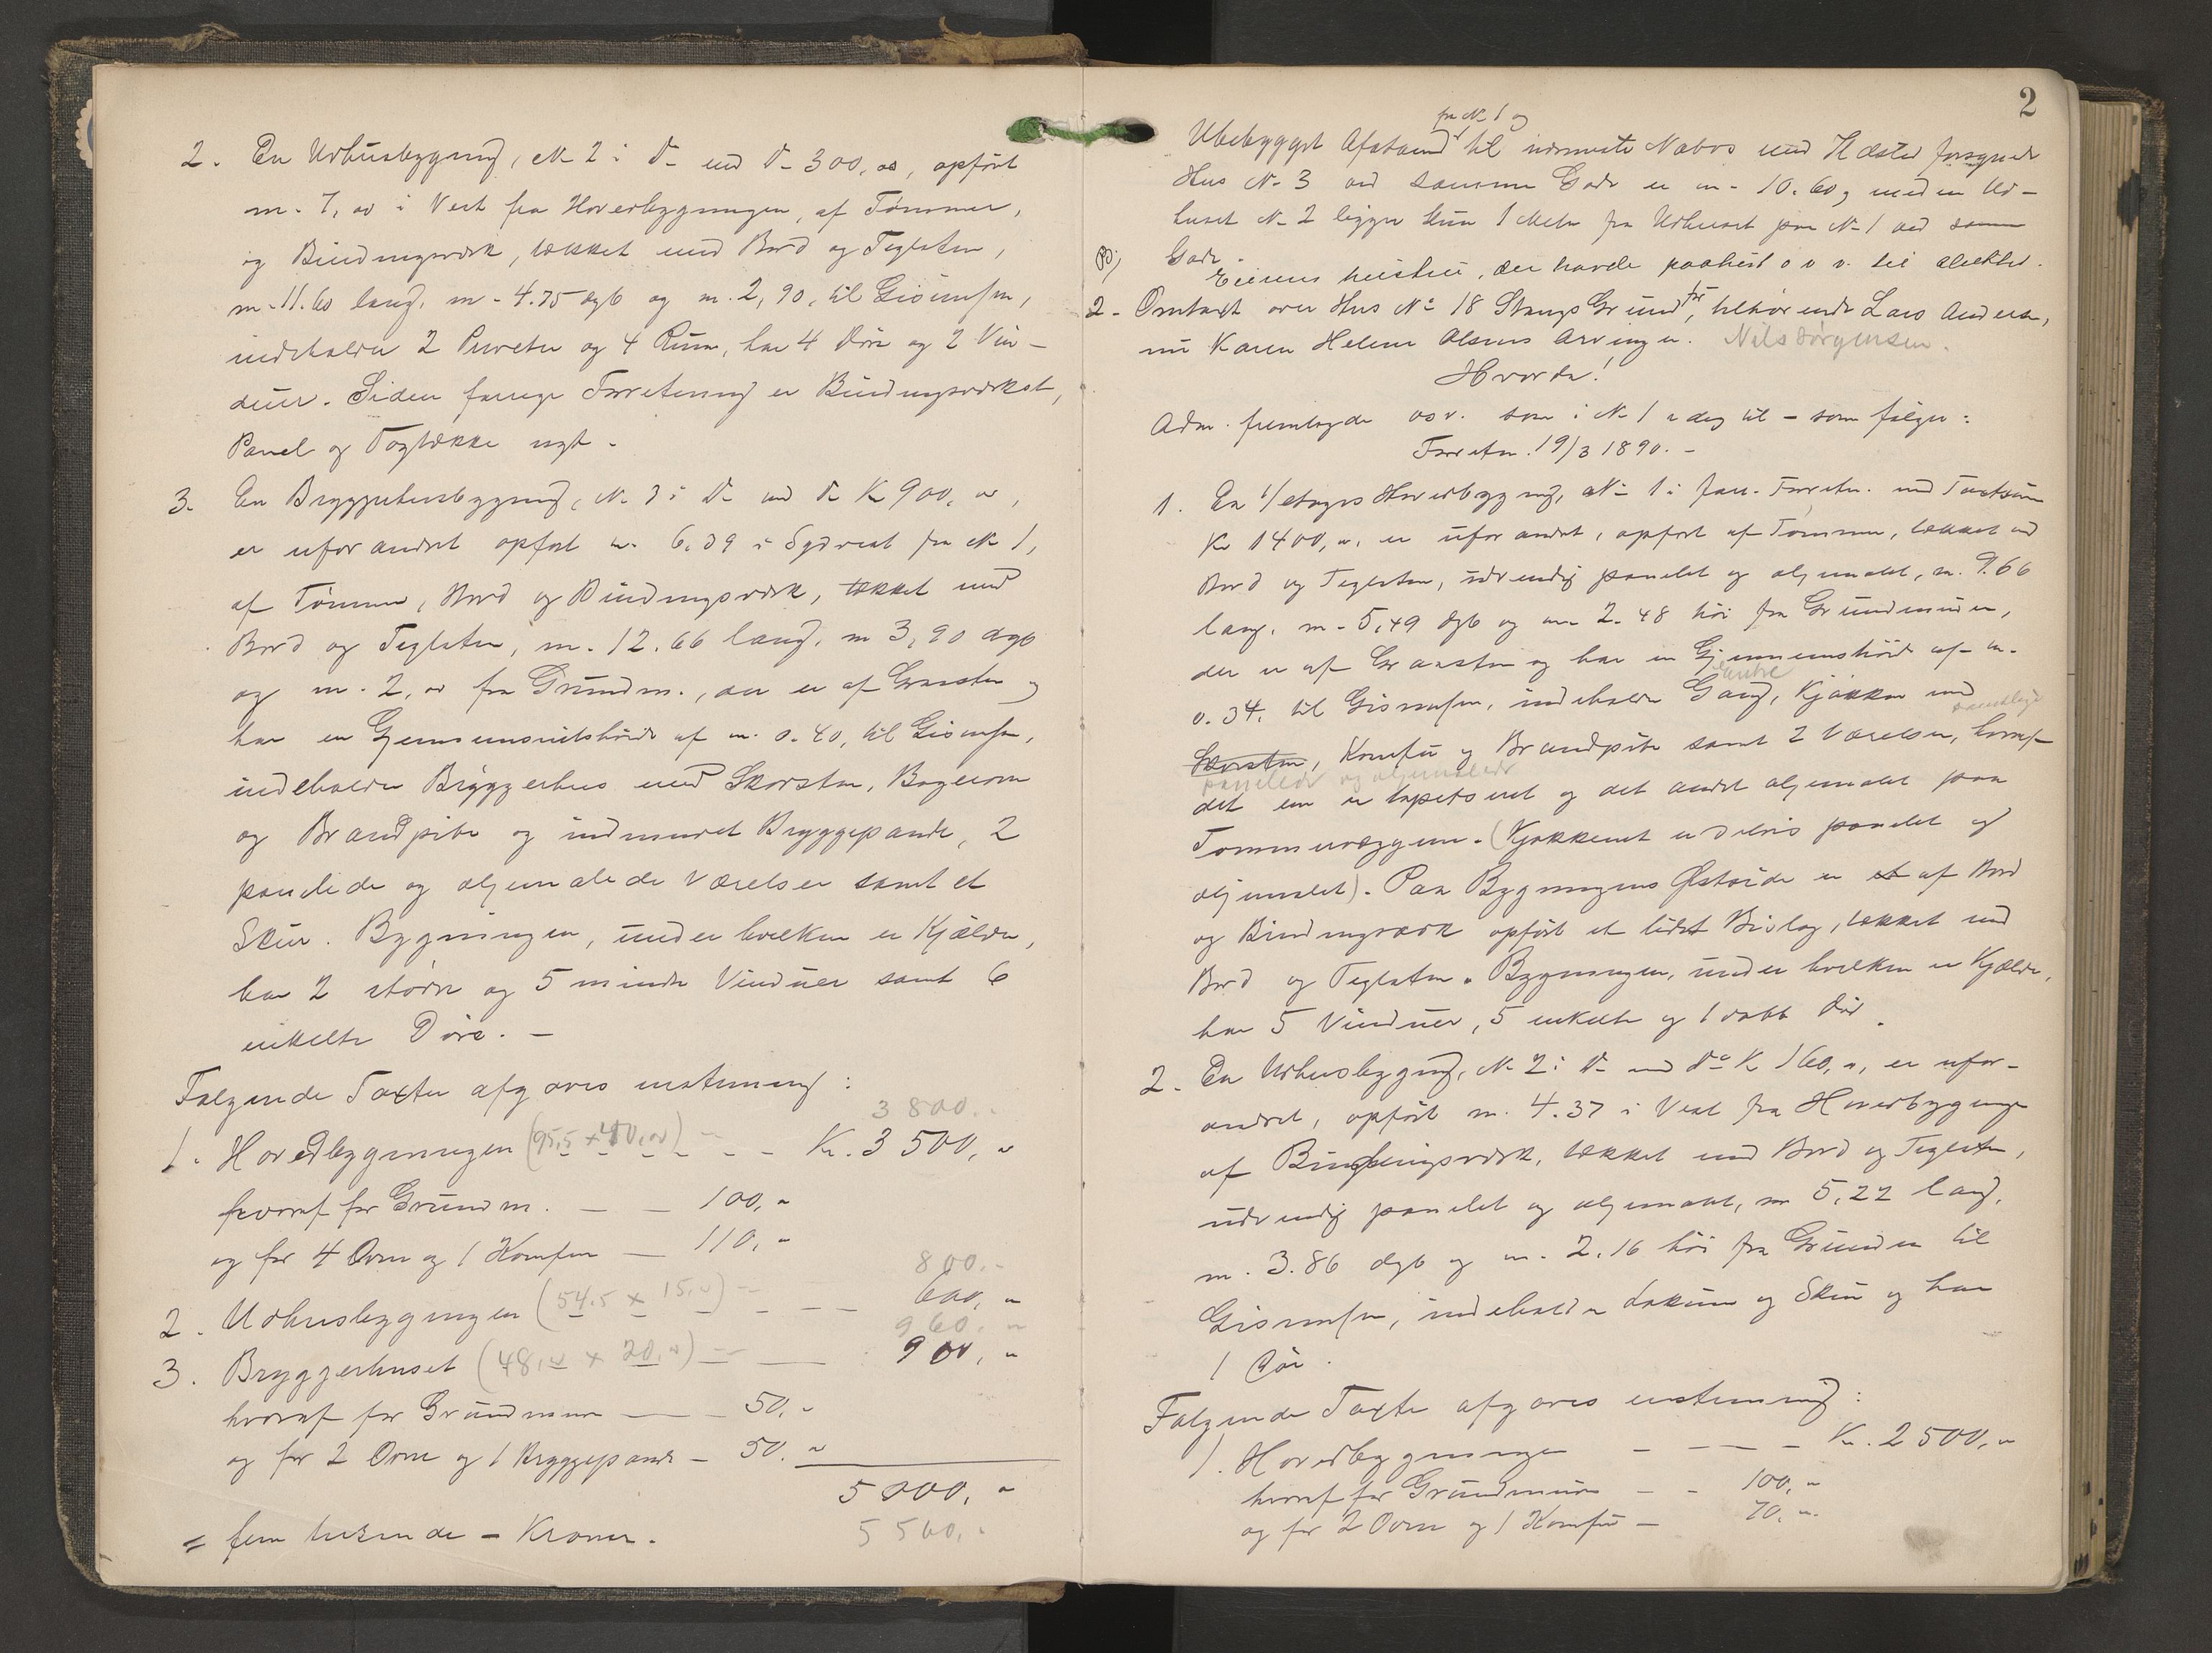 2. En Udhusbygning, No 2 i do med do 300,00, opført
m. 7,00 i Vest fra Hovedbygningen, af Tømmer,
og Bindingsværk, tækket med Bord og Teglsten,
m. 11.60 lang, m. 4.75 dyb og m. 2,90, til Gisimsen,
indeholder 2 Priveter og 4 Rum, har 4 Døre og 2 Vin-
duer. Siden forrige Forretning er Bindingsværket,
Panel og Tagtække nyt.
3. En Bryggerhusbygning, No 3 i do med do Kr 900,00,
er uforandret opført m. 6,39 i Sydvest fra No 1,
af Tømmer, Bord og Bindingsværk, tækket med
Bord og Teglsten, m. 12.66 lang, m 3,90 dyb
og m. 2,00 fra Grundm., der er af Graasten og
har en Gjennemsnitshøide af m. 0.40, til Gisimsen,
indeholder Bryggerhus med Skorsten, Bagerovn
og Brandpibe og indmuret Bryggepande, 2
panelede og oljemalede Værelser samt et
Skur. Bygningen, under hvilken er Kjælder,
har 2 større og 5 mindre Vinduer samt 6
enkelte Døre. –
Følgende Taxter afgaves enstemmig:
3 800.-
1. Hovedbygningen (95,5 x 40,00) – Kr. 3 500, "
hvoraf for Grundm. – – 100, "
og for 4 Ovne og 1 Komfur – 110, "
800.-
2. Udhusbygningen (54.5 x 15,00) – – 600, "
960. "
3. Bryggerhuset (48,00 x 20,00) – – 900, "
hvoraf for Grundmuren – – 50, "
og for 2 Ovne og 1 Bryggepande – 50. "
5 000, "
= fem tusinde – Kroner.
5 500, "
2
fra No 1 og
Ubebygget Afstand til nærmeste Nabos med Ildsted forsynede
Hus No 3 ved samme Gade er m. 10.60, medens Ud-
huset No 2 ligger kun 1 Meter fra Udhuset paa No 1 ved samme
Gade.
Eierens hustru, der havde paahørt o s v. til
2. Omtaxt over Hus No 18 Stangs Grund, før tilhørende Lars Andersen,
nu Karen Helene Olsens Arvinger. Nils Jørgensen.
Hvorda!
Adm. fremlagde osv. som i No 1 i dag til – som følger:
Forretn. 19/3 1890. –
1. En 1/etages Hovedbygning, No 1 i forr. Forretn. med Taxtsum
Kr 1400,00, er uforandret, opført af Tømmer, tækket med
Bord og Teglsten, udvendig panelet og oljemalet, m. 9.66
lang, m. 5,49 dyb og m. 2.48 høi fra Grundmuren,
der er af Graasten og har en Gjennemsnitshøide af m.
Entre
0.34, til Gisimsen, indeholder Gang, Kjøkken med
samtlige
Skorsten, Komfur og Brandpibe samt 2 Værelser, hvoraf
panelede og oljemalede
det ene er tapetseret og det andet oljemalet paa
Tømmervæggene. (Kjøkkenet er delvis panelet og
oljemalet). Paa Bygningens Østside er et af Bord
og Bindingsværk opført et lidet Bislag, tækket med
Bord og Teglsten. Bygningen, under hvilken er Kjælder,
har 5 Vinduer, 5 enkelte og 1 dobb Dør.
2. En Udhusbygning, No 2 i do med do Kr 160,00, er ufor-
andret, opført m. 4.37 i Vest fra Hovedbygningen
af Bindingsværk, tækket med Bord og Teglsten,
udvendig panelet og oljemalet, m 5,22 lang,
m. 3.86 dyb og m. 2.16 høi fra Grunden til
Gisimsen, indeholder Lokum og Skur og har
1 Dør.
Følgende Taxter afgaves enstemmig:
1. Hovedbygningen – – – – Kr. 2 500, "
hvoraf for Grundmuren – – 100, "
og for 2 Ovne og 1 Komfur – 70, "